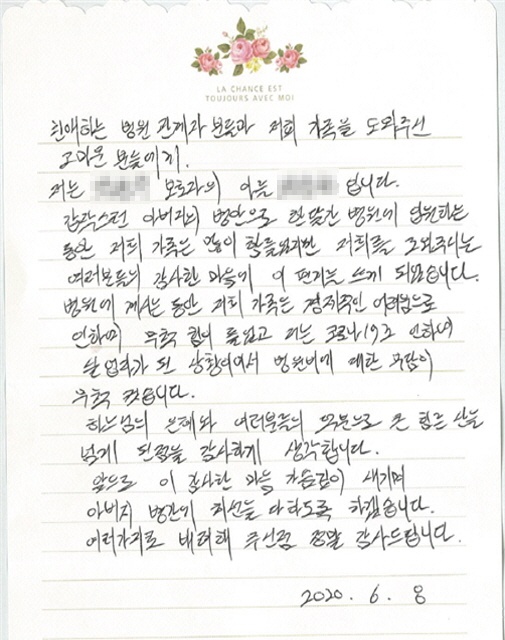 LA CHANCE EST
TOUJOURS AVEC MOI
친애하는 병원 관계자 분들과 저희 가족을 도와주신
고마운 분들에게.
저는 보호자의 아들 입니다.
갑작스런 아버지의 병환으로 한달간 병원에 입원하는
동안 저희 가족은 많이 힘들었지만 저희를 도와주시는
여러분들의 감사한 마음에 이 편지를 쓰게 되었습니다.
병원에 계시는 동안 저희 가족은 경제적인 어려움으로
인하여 무척 힘이 들었고 저는 코로나19로 인하여
실업자가 된 상황이여서 병원비에 대한 부담이
무척 컸습니다.
하느님의 은혜와 여러분들의 덕분으로 큰 힘든 산을
넘게 된점을 감사하게 생각합니다.
앞으로 이 감사한 마음 가슴깊이 새기며
아버지 병간에 최선을 다하도록 하겠습니다.
여러가지로 배려해 주신점 정말 감사드립니다.
2020. 6. 8